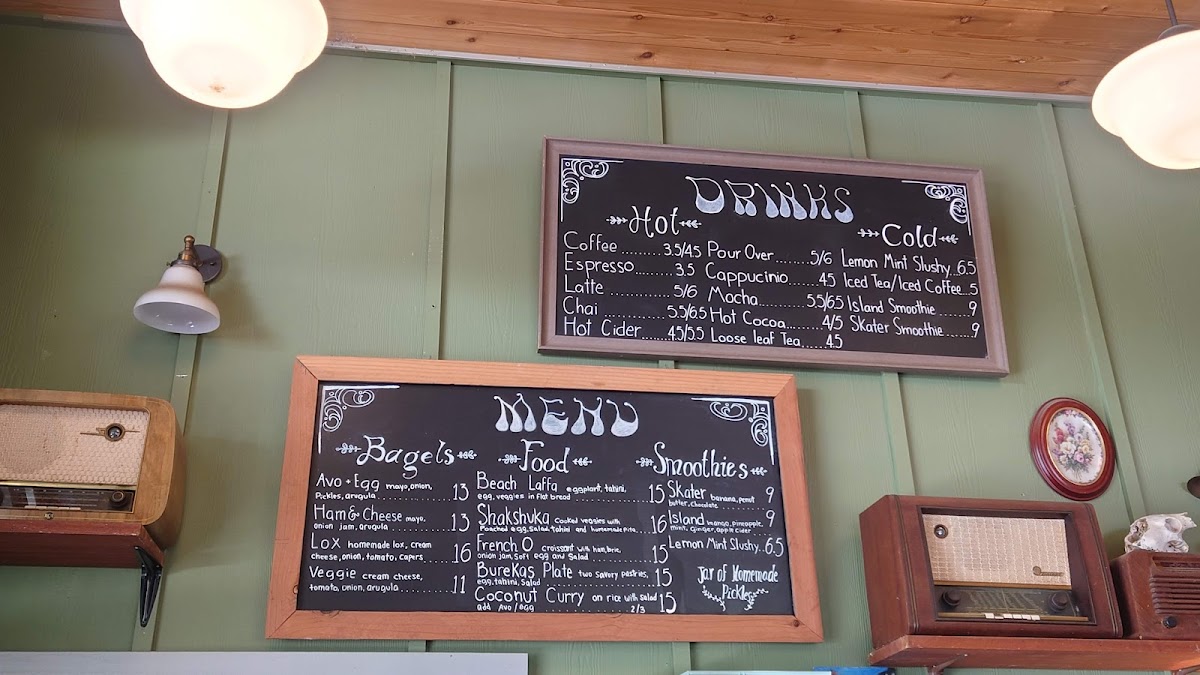 DRINKS
Hot
Coffee.........3.5/4.5
Espresso........3.5
Latte............5/6
Chai............5.5/6.5
Hot Cider.......4.5/5.5
Pour Over.........5/6
Cappucinio......4.5
Mocha..........5.5/6.5
Hot Cocoa.......4/5
Loose leaf Tea.....4.5
Cold
Lemon Mint Slushy..6.5
Iced Tea/Iced Coffee..5
Island Smoothie.......9
Skater Smoothie......9
MENU
Bagels
Avo + Egg mayo, onion,
Pickles, arugula..........13
Ham & Cheese mayo,
onion jam, arugula........13
Lox homemade lox, cream
cheese, onion, tomato, capers....16
Veggie cream cheese,
tomato, onion, arugula..........11
Food
Beach Laffa eggplant, tahini,
egg, veggies in flat bread.........15
Shakshuka cooked veggies with
Poached egg, Salad, tahini and homemade pita..16
French O croissant with ham, brie,
onion jam, soft egg and Salad.......15
Burekas Plate two savory pastries,
egg, tahini, Salad.............15
Coconut Curry on rice with salad 15
add Avo/egg.............2/3
Smoothies
Skater banana, penut
butter, chocolate.........9
Island mango, pineapple,
mint, ginger, apple cider....9
Lemon Mint Slushy..6.5
Jar of Homemade
Pickles